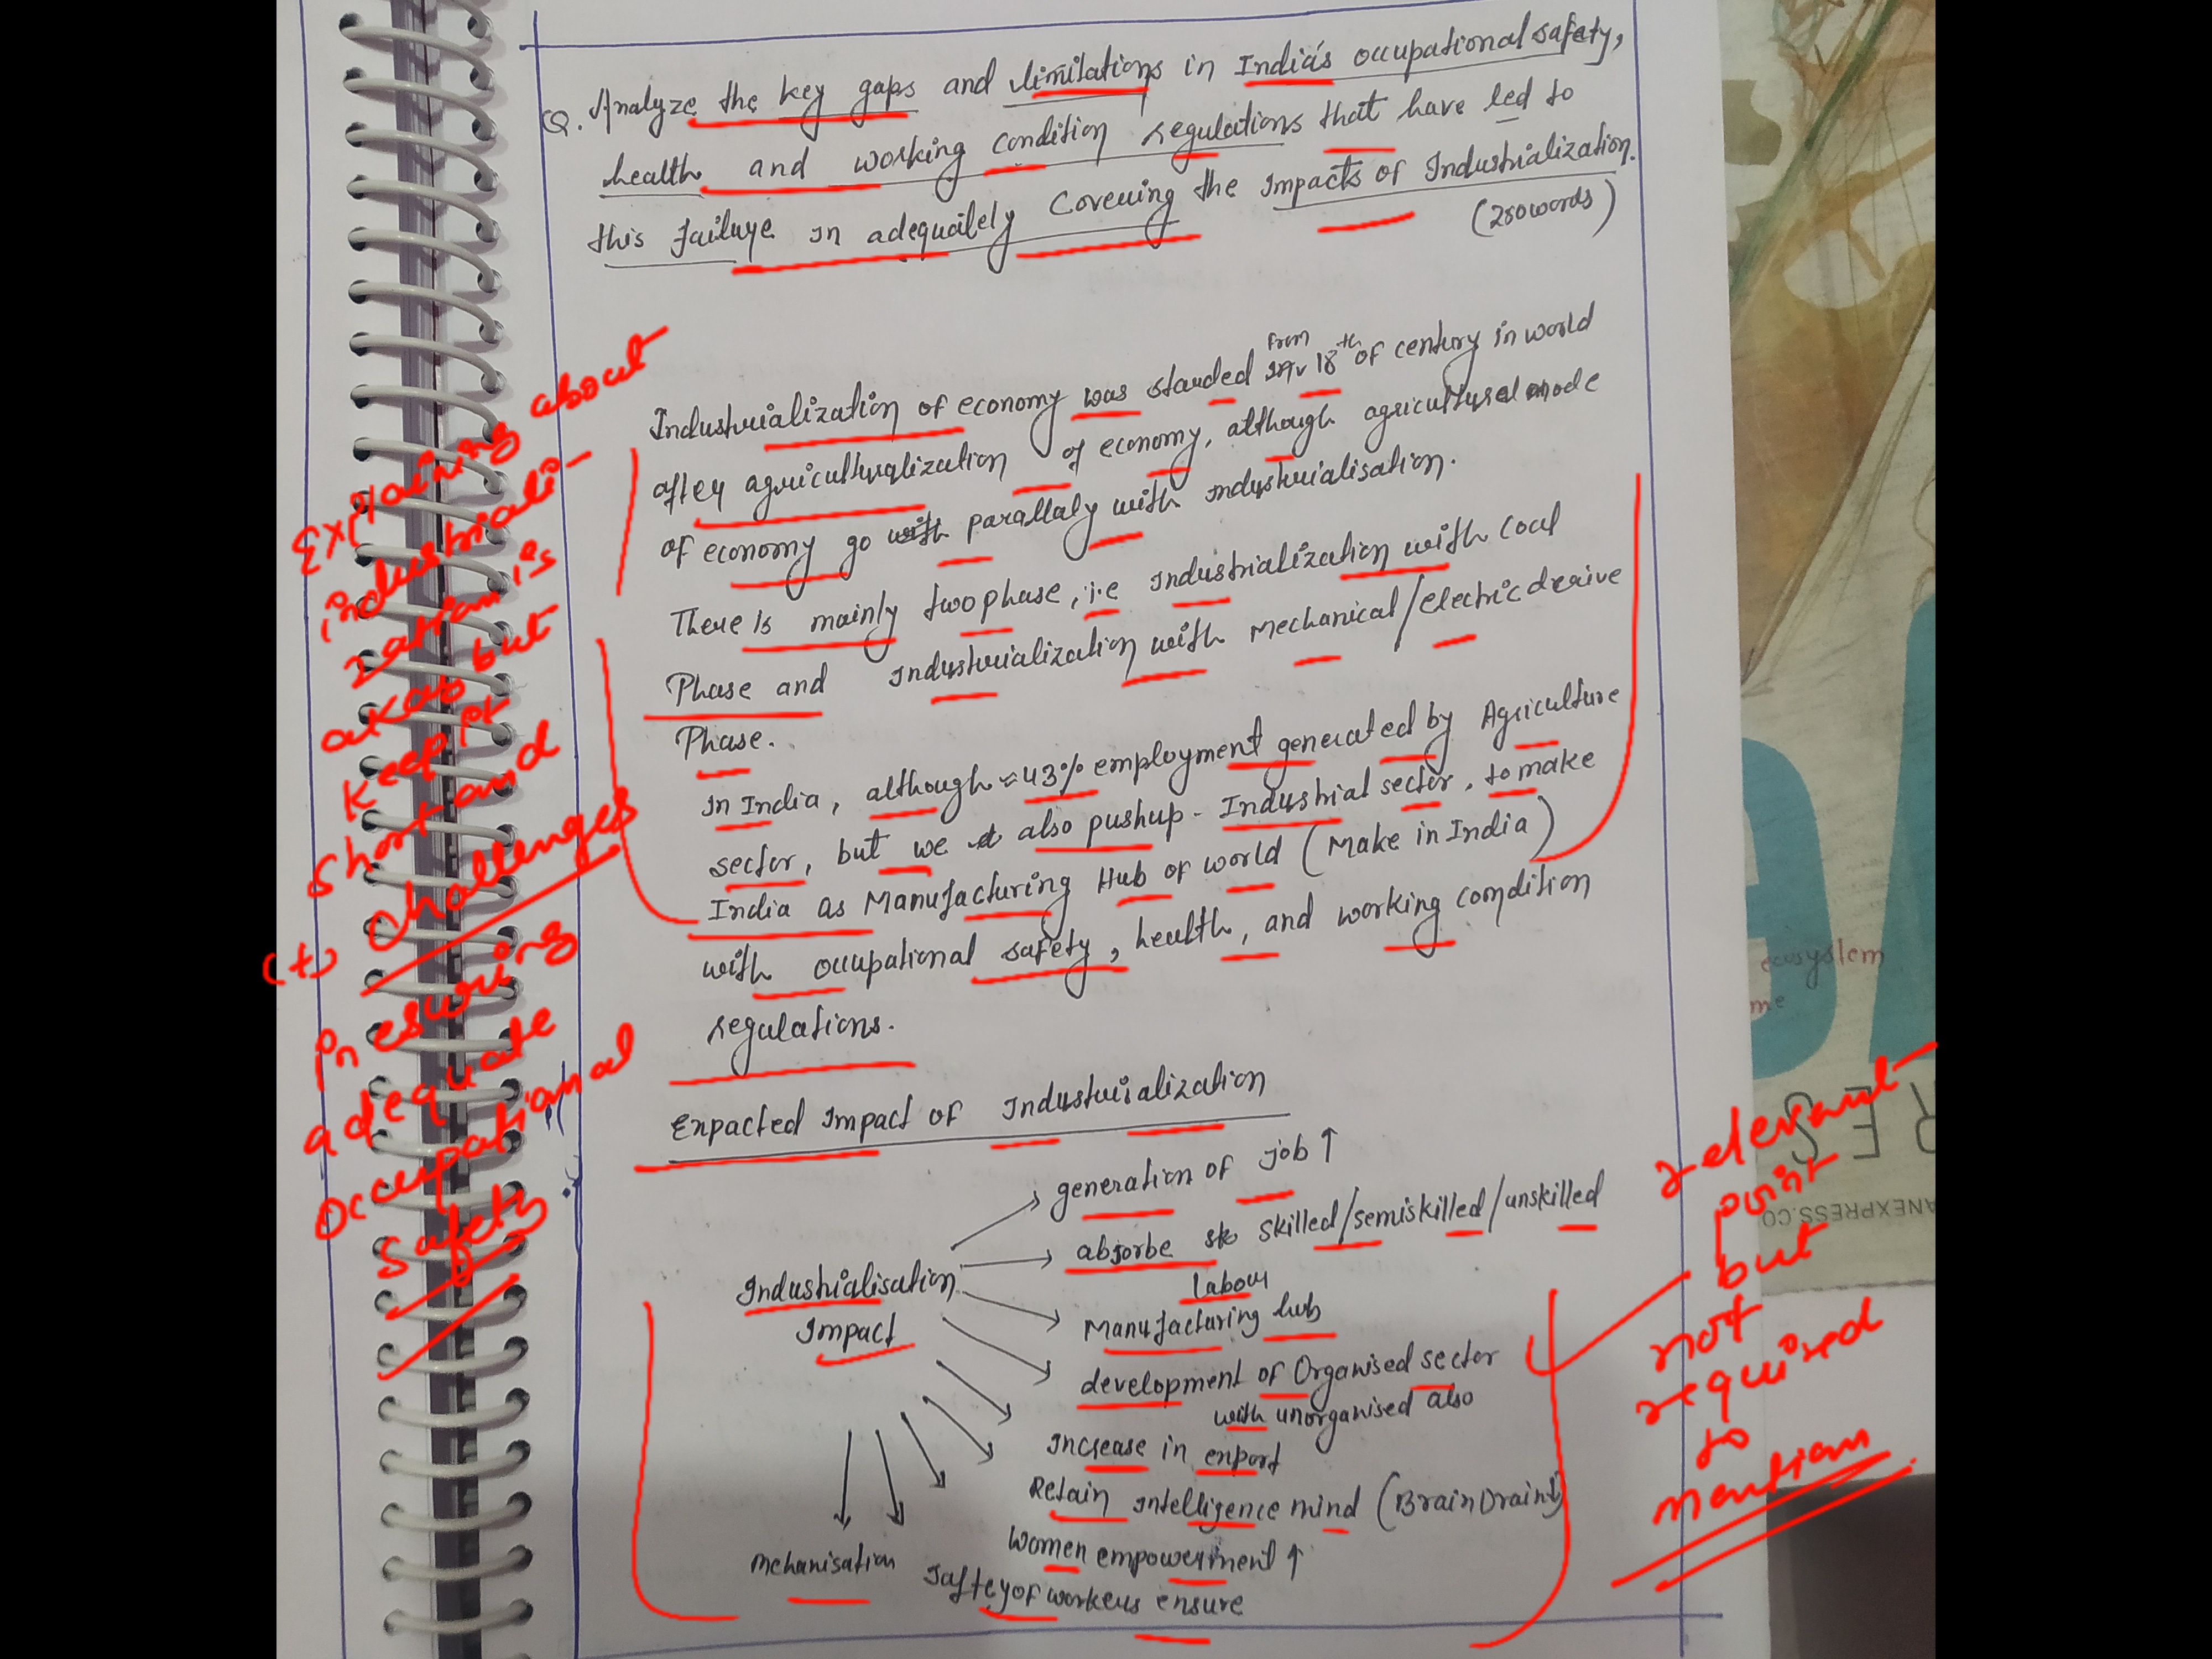 Q. Analyze the key gaps and limitations in India's occupational safety,
health and working condition regulations that have led to
this failure in adequately Covering the Impacts of Industrialization.
(250words)
Industrialization of economy was started from 18th of century in world
after agriculturalization of economy, although agricultural mode
of economy go with parallaly with industrialisation.
There is mainly two phase, i.e Industrialization with coal
Phase and Industrialization with Mechanical/electric derive
Phase.
In India, although ≈43% employment generated by Agriculture
sector, but we also pushup - Industrial sector, to make
India as Manufacturing Hub of world (Make in India)
with occupational safety, health, and working condition
regulations.
Expacted Impact of Industrialization
Industrialisation
Impact
generation of job ↑
absorbe skilled/semiskilled/unskilled
labour
Manufacturing hub
development of Organised sector
with unorganised also
Increase in export
Retain intelligence mind (Brain Drain↓)
Women empowerment ↑
Saftey of workers ensure
Mechanisation
Explaining about
industriali-
zation is
okay but
keep it
short and
(+) Challenges
in esuring
adequate
Occupational
Safety
relevant
point
but
not
required
to
mention
ecosystem
me
RES
ANEXPRESS.CO